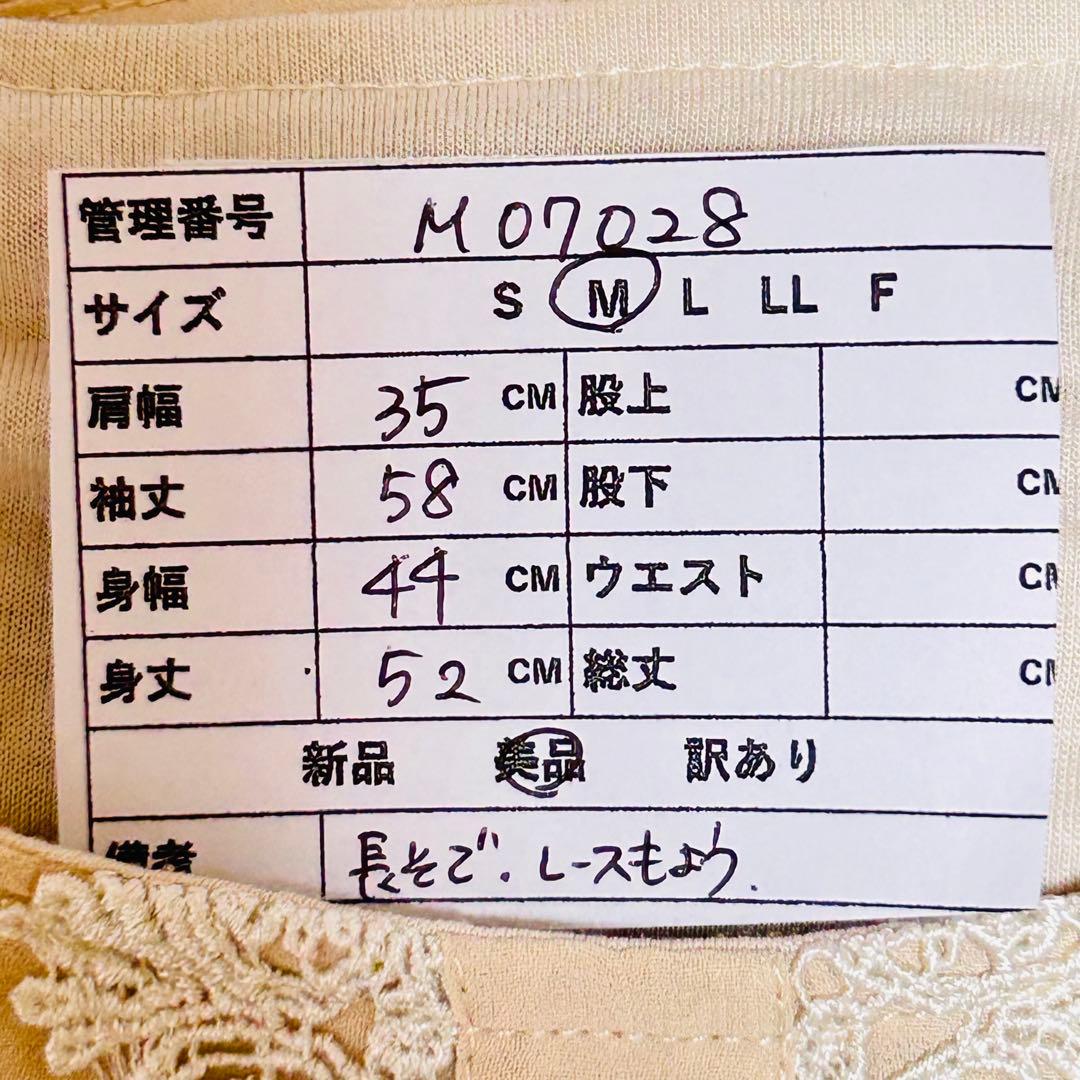 管理番号 M07028
サイズ S M L LL F
肩幅 35 CM 股上 CM
袖丈 58 CM 股下 CM
身幅 44 CM ウエスト CM
身丈 52 CM 総丈 CM
新品 美品 訳あり
備考 長そで.レースもよう.